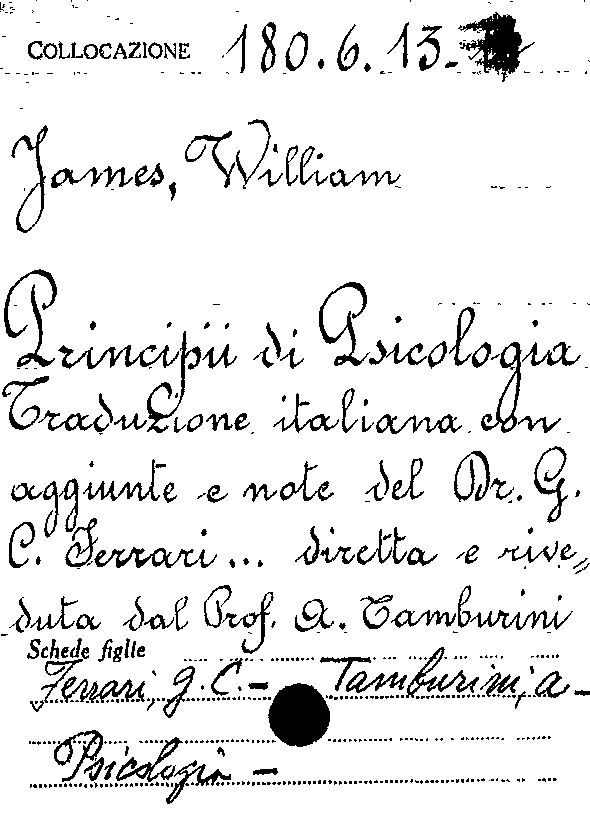 COLLOCAZIONE 180.6.13.
James, William
Principii di Psicologia
Traduzione italiana con
aggiunte e note del Dr. G.
C. Ferrari... diretta e rive„
duta dal Prof. A. Tamburini
Schede figlie
Ferrari, G. C. – Tamburini, A –
Psicologia –